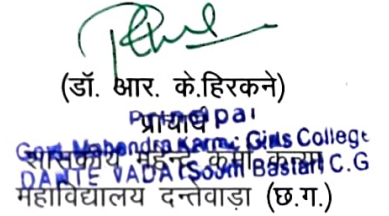 (डॉ. आर. के.हिरकने)
प्राचार्य
Principal
Govt. Mahendra Karma Girls College
शासकीय महेन्द्र कर्मा कन्या
DANTEWADA (South Bastar) C.G
महाविद्यालय दन्तेवाड़ा (छ.ग.)